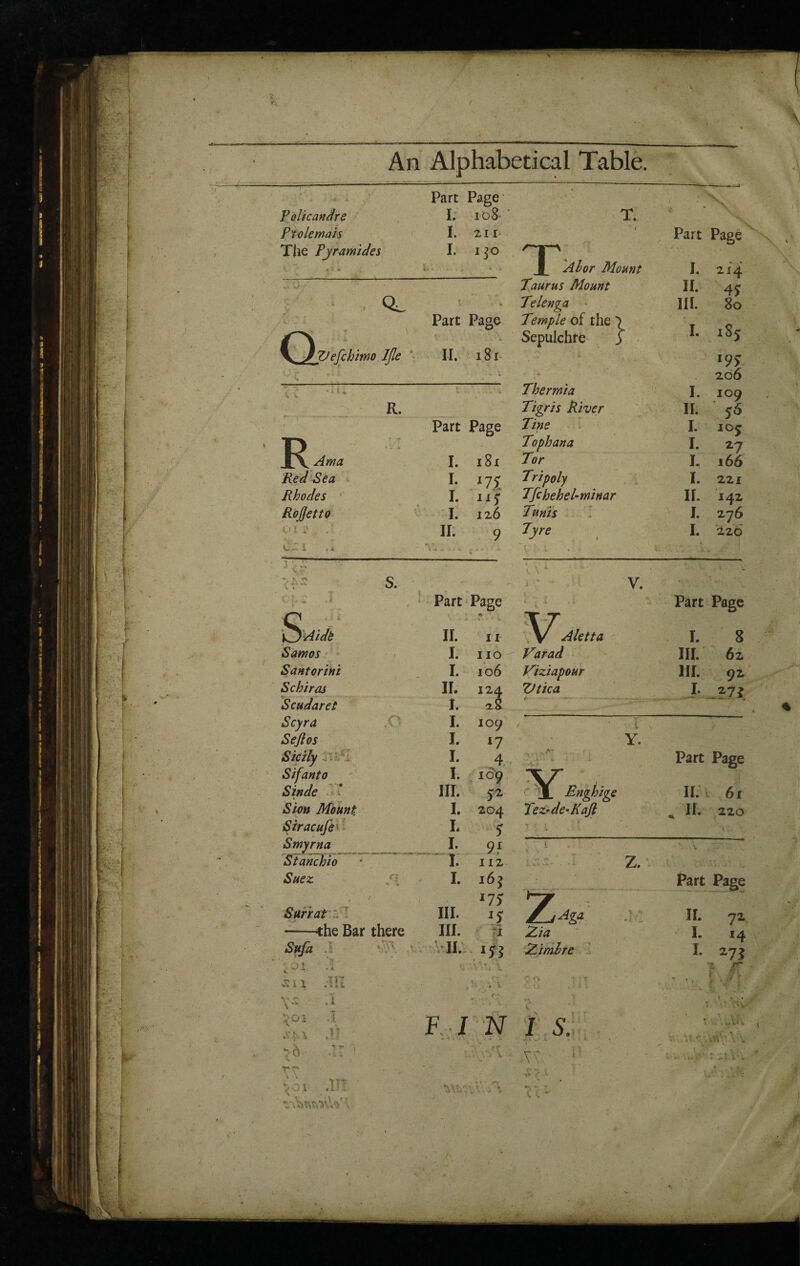 An Alphabetical Table.
Part Page
Policandre I. 108
Ptolemais I. 211
The Pyramides I. 130
Q.
Part Page
QVeſchimo Iſle II. 181
R.
Part Page
RAma I. 181
Red Sea I. 175
Rhodes I. 115
Roſſetto I. 126
II. 9
S.
Part Page
SAide II. 11
Samos I. 110
Santorini I. 106
Schiras II. 124
Scudaret I. 28
Scyra I. 109
Seſtos I. 17
Sicily I. 4
Sifanto I. 109
Sinde III. 52
Sion Mount I. 204
Siracuſe I. 5
Smyrna I. 91
Stanchio I. 112
Suez I. 163
175
Surrat III. 15
——the Bar there III. 1
Suſa II. 153
T.
Part Page
TAbor Mount I. 214
Taurus Mount II. 45
Telenga III. 80
Temple of the } I. 185
Sepulchre }
195
206
Thermia I. 109
Tigris River II. 56
Tine I. 105
Tophana I. 27
Tor I. 166
Tripoly I. 221
Tſchehel-minar II. 142
Tunis I. 276
Tyre I. 220
V.
Part Page
VAletta I. 8
Varad III. 62
Viziapour III. 92
Utica I. 273
Y.
Part Page
YEnghige II. 61
Tez-de-Kaſt II. 220
Z.
Part Page
ZAga II. 72
Zia I. 14
Zimbre I. 273
F I N I S.